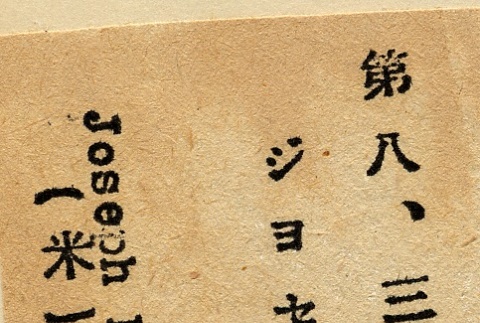 第八、三
ジヨセ
Joseph
(米)